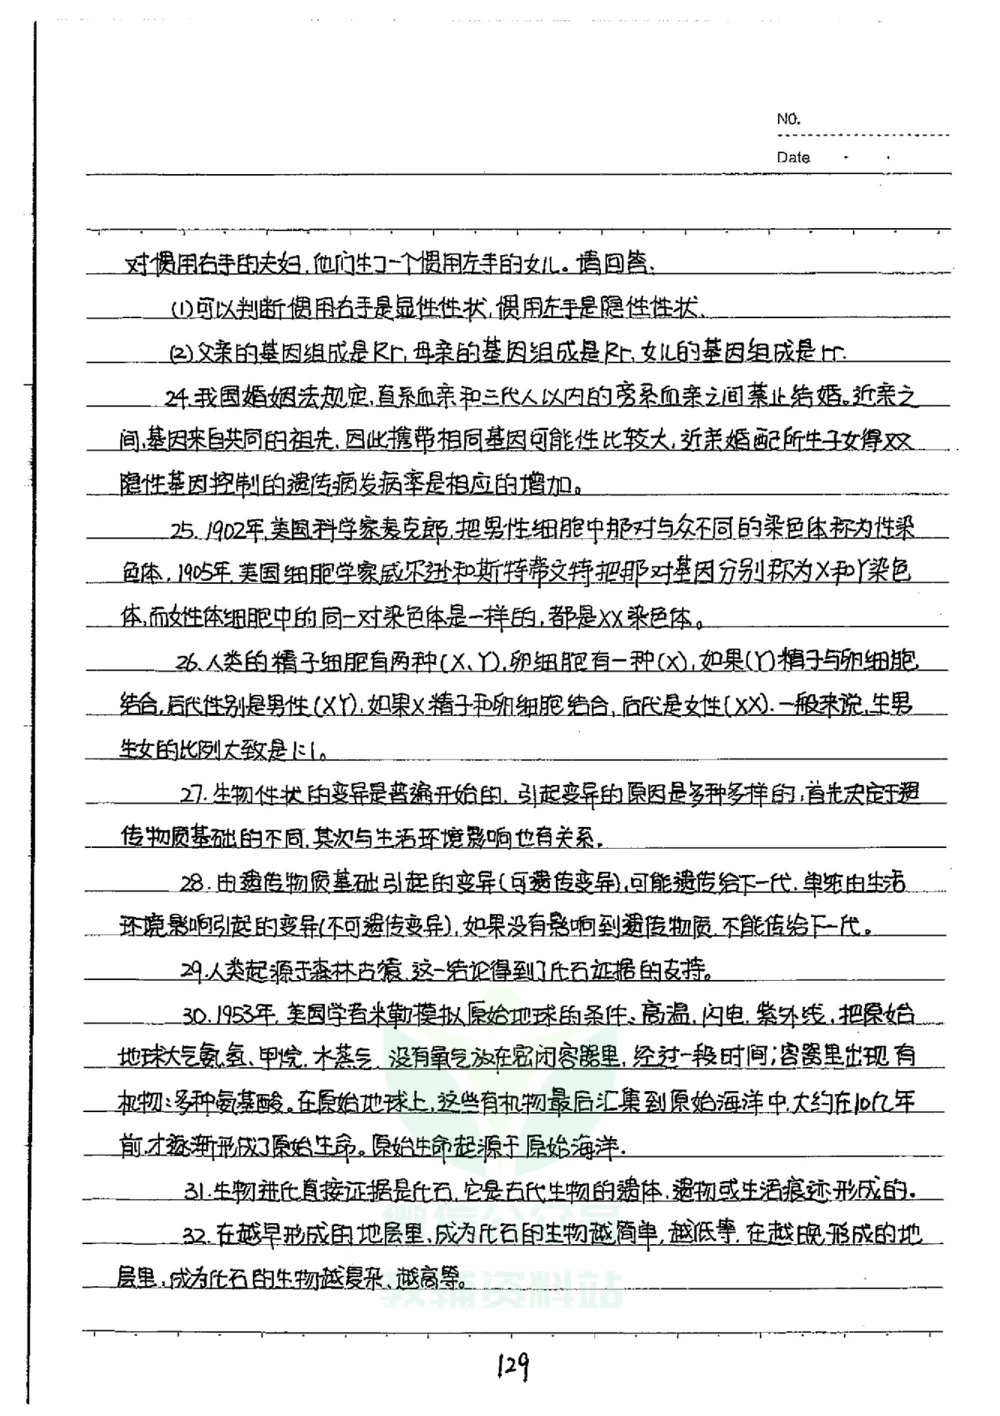 NO.
Date
对惯用右手的夫妇,他们生了一个惯用左手的女儿。请回答:
(1)可以判断惯用右手是显性性状,惯用左手是隐性性状.
(2)父亲的基因组成是Rr,母亲的基因组成是Rr,女儿的基因组成是rr.
24.我国婚姻法规定,直系血亲和三代人以内的旁系血亲之间禁止结婚。近亲之
间,基因来自共同的祖先,因此携带相同基因可能性比较大,近亲婚配所生子女得XX
隐性基因控制的遗传病发病率是相应的增加。
25.1902年,美国科学家麦克郎,把男性细胞中那对与众不同的染色体称为性染
色体.1905年,美国细胞学家威尔逊和斯特蒂文特把那对基因分别称为X和Y染色
体,而女性体细胞中的同一对染色体是一样的,都是XX染色体。
26.人类的精子细胞有两种(X、Y),卵细胞有一种(X),如果(Y)精子与卵细胞
结合,后代性别是男性(XY),如果X精子和卵细胞结合,后代是女性(XX).一般来说,生男
生女的比例大致是1:1。
27.生物性状的变异是普遍开始的,引起变异的原因是多种多样的,首先决定于遗
传物质基础的不同,其次与生活环境影响也有关系.
28.由遗传物质基础引起的变异(可遗传变异),可能遗传给下一代.单纯由生活
环境影响引起的变异(不可遗传变异),如果没有影响到遗传物质,不能传给下一代。
29.人类起源于森林古猿,这一结论得到了化石证据的支持。
30.1953年,美国学者米勒模拟原始地球的条件、高温,闪电.紫外线,把原始
地球大气氨、氢、甲烷.水蒸气.没有氧气放在密闭容器里,经过一段时间;容器里出现有
机物:多种氨基酸。在原始地球上,这些有机物最后汇集到原始海洋中,大约在10亿年
前,才逐渐形成了原始生命。原始生命起源于原始海洋.
31.生物进化直接证据是化石,它是古代生物的遗体,遗物或生活痕迹形成的。
32.在越早形成的地层里,成为化石的生物越简单,越低等,在越晚形成的地
层里,成为化石的生物越复杂、越高等。
微信公众号
教辅资料站
129